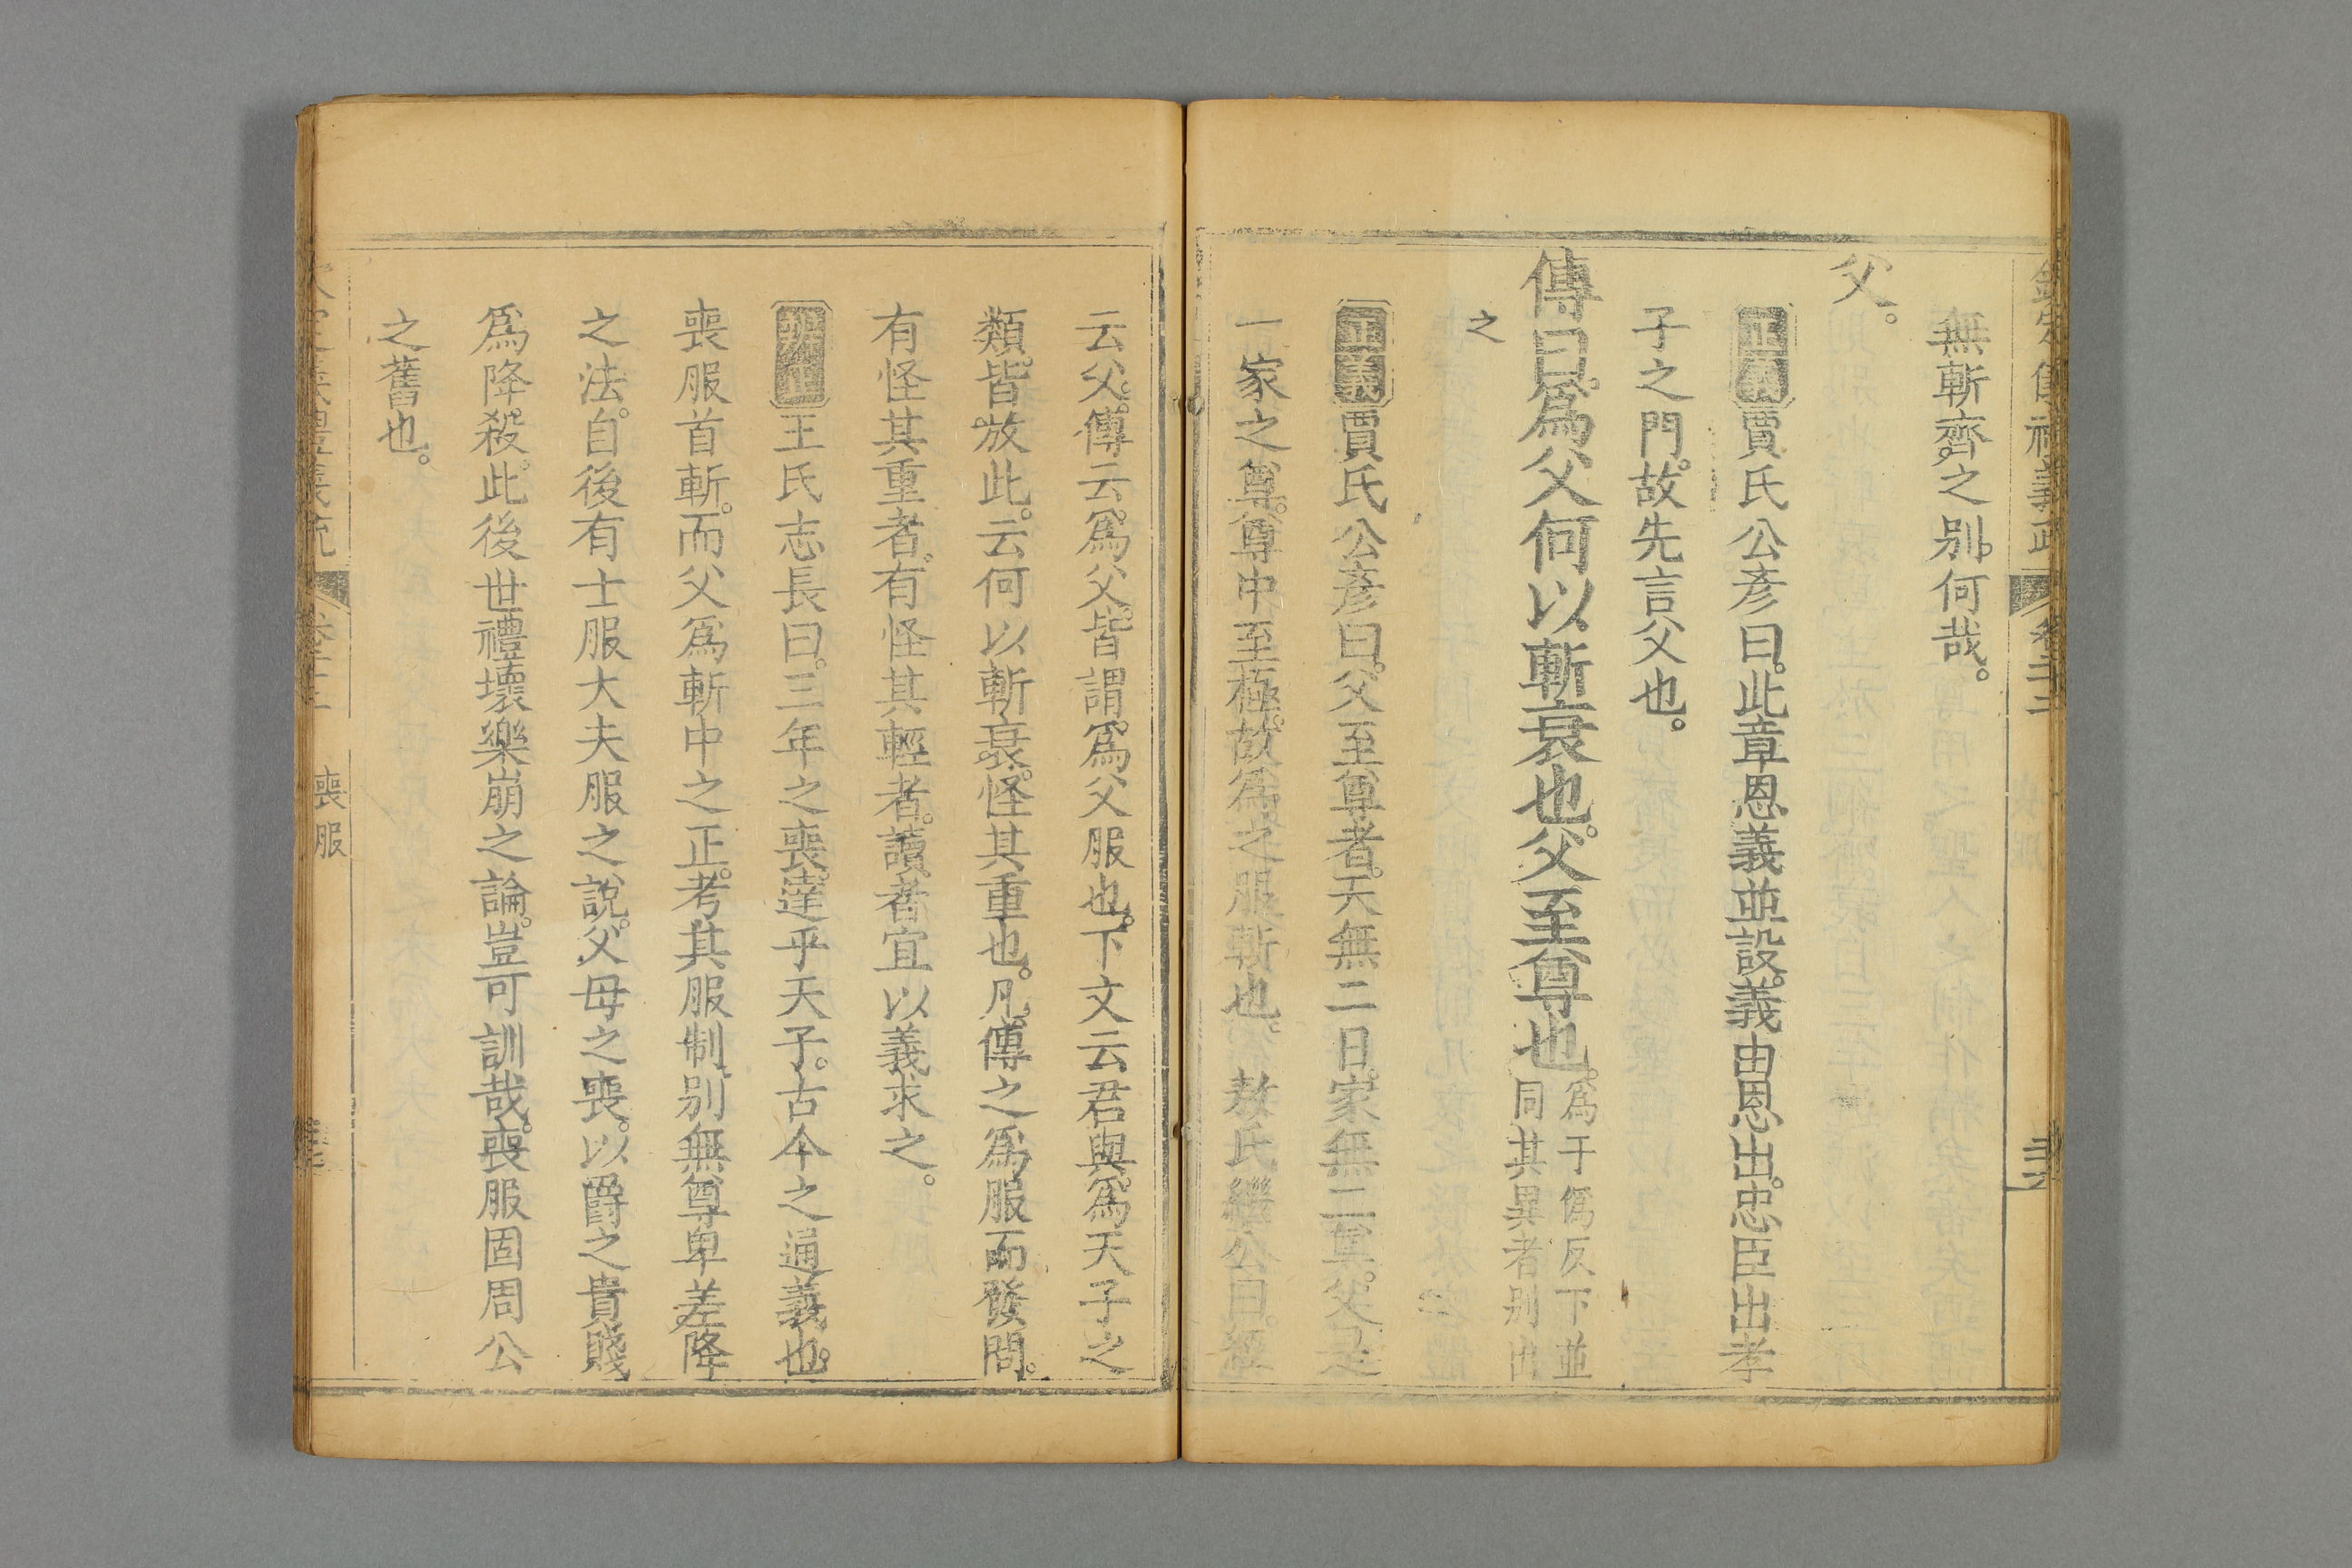 無斬齊之別何哉。
父。
正義賈氏公彥曰。此章恩義並設。義由恩出。忠臣出孝
子之門。故先言父也。
傳曰。爲父何以斬衰也。父至尊也。爲于僞反下並
同其異者别出
之
正義賈氏公彥曰。父至尊者。天無二日。家無二尊。父是
一家之尊。尊中至極。故爲之服斬也。 敖氏繼公曰。經
云父。傳云爲父。皆謂爲父服也。下文云君與爲天子之
類。皆放此。云何以斬衰。怪其重也。凡傳之爲服而發問。
有怪其重者。有怪其輕者。讀者宜以義求之。
王氏志長曰。三年之喪。達乎天子。古今之通義也。
喪服首斬。而父爲斬中之正。考其服制别無尊卑差降
之法。自後有士服大夫服之說。父母之喪。以爵之貴賤
爲降殺。此後世禮壞樂崩之論。豈可訓哉。喪服固周公
之舊也。
喪服